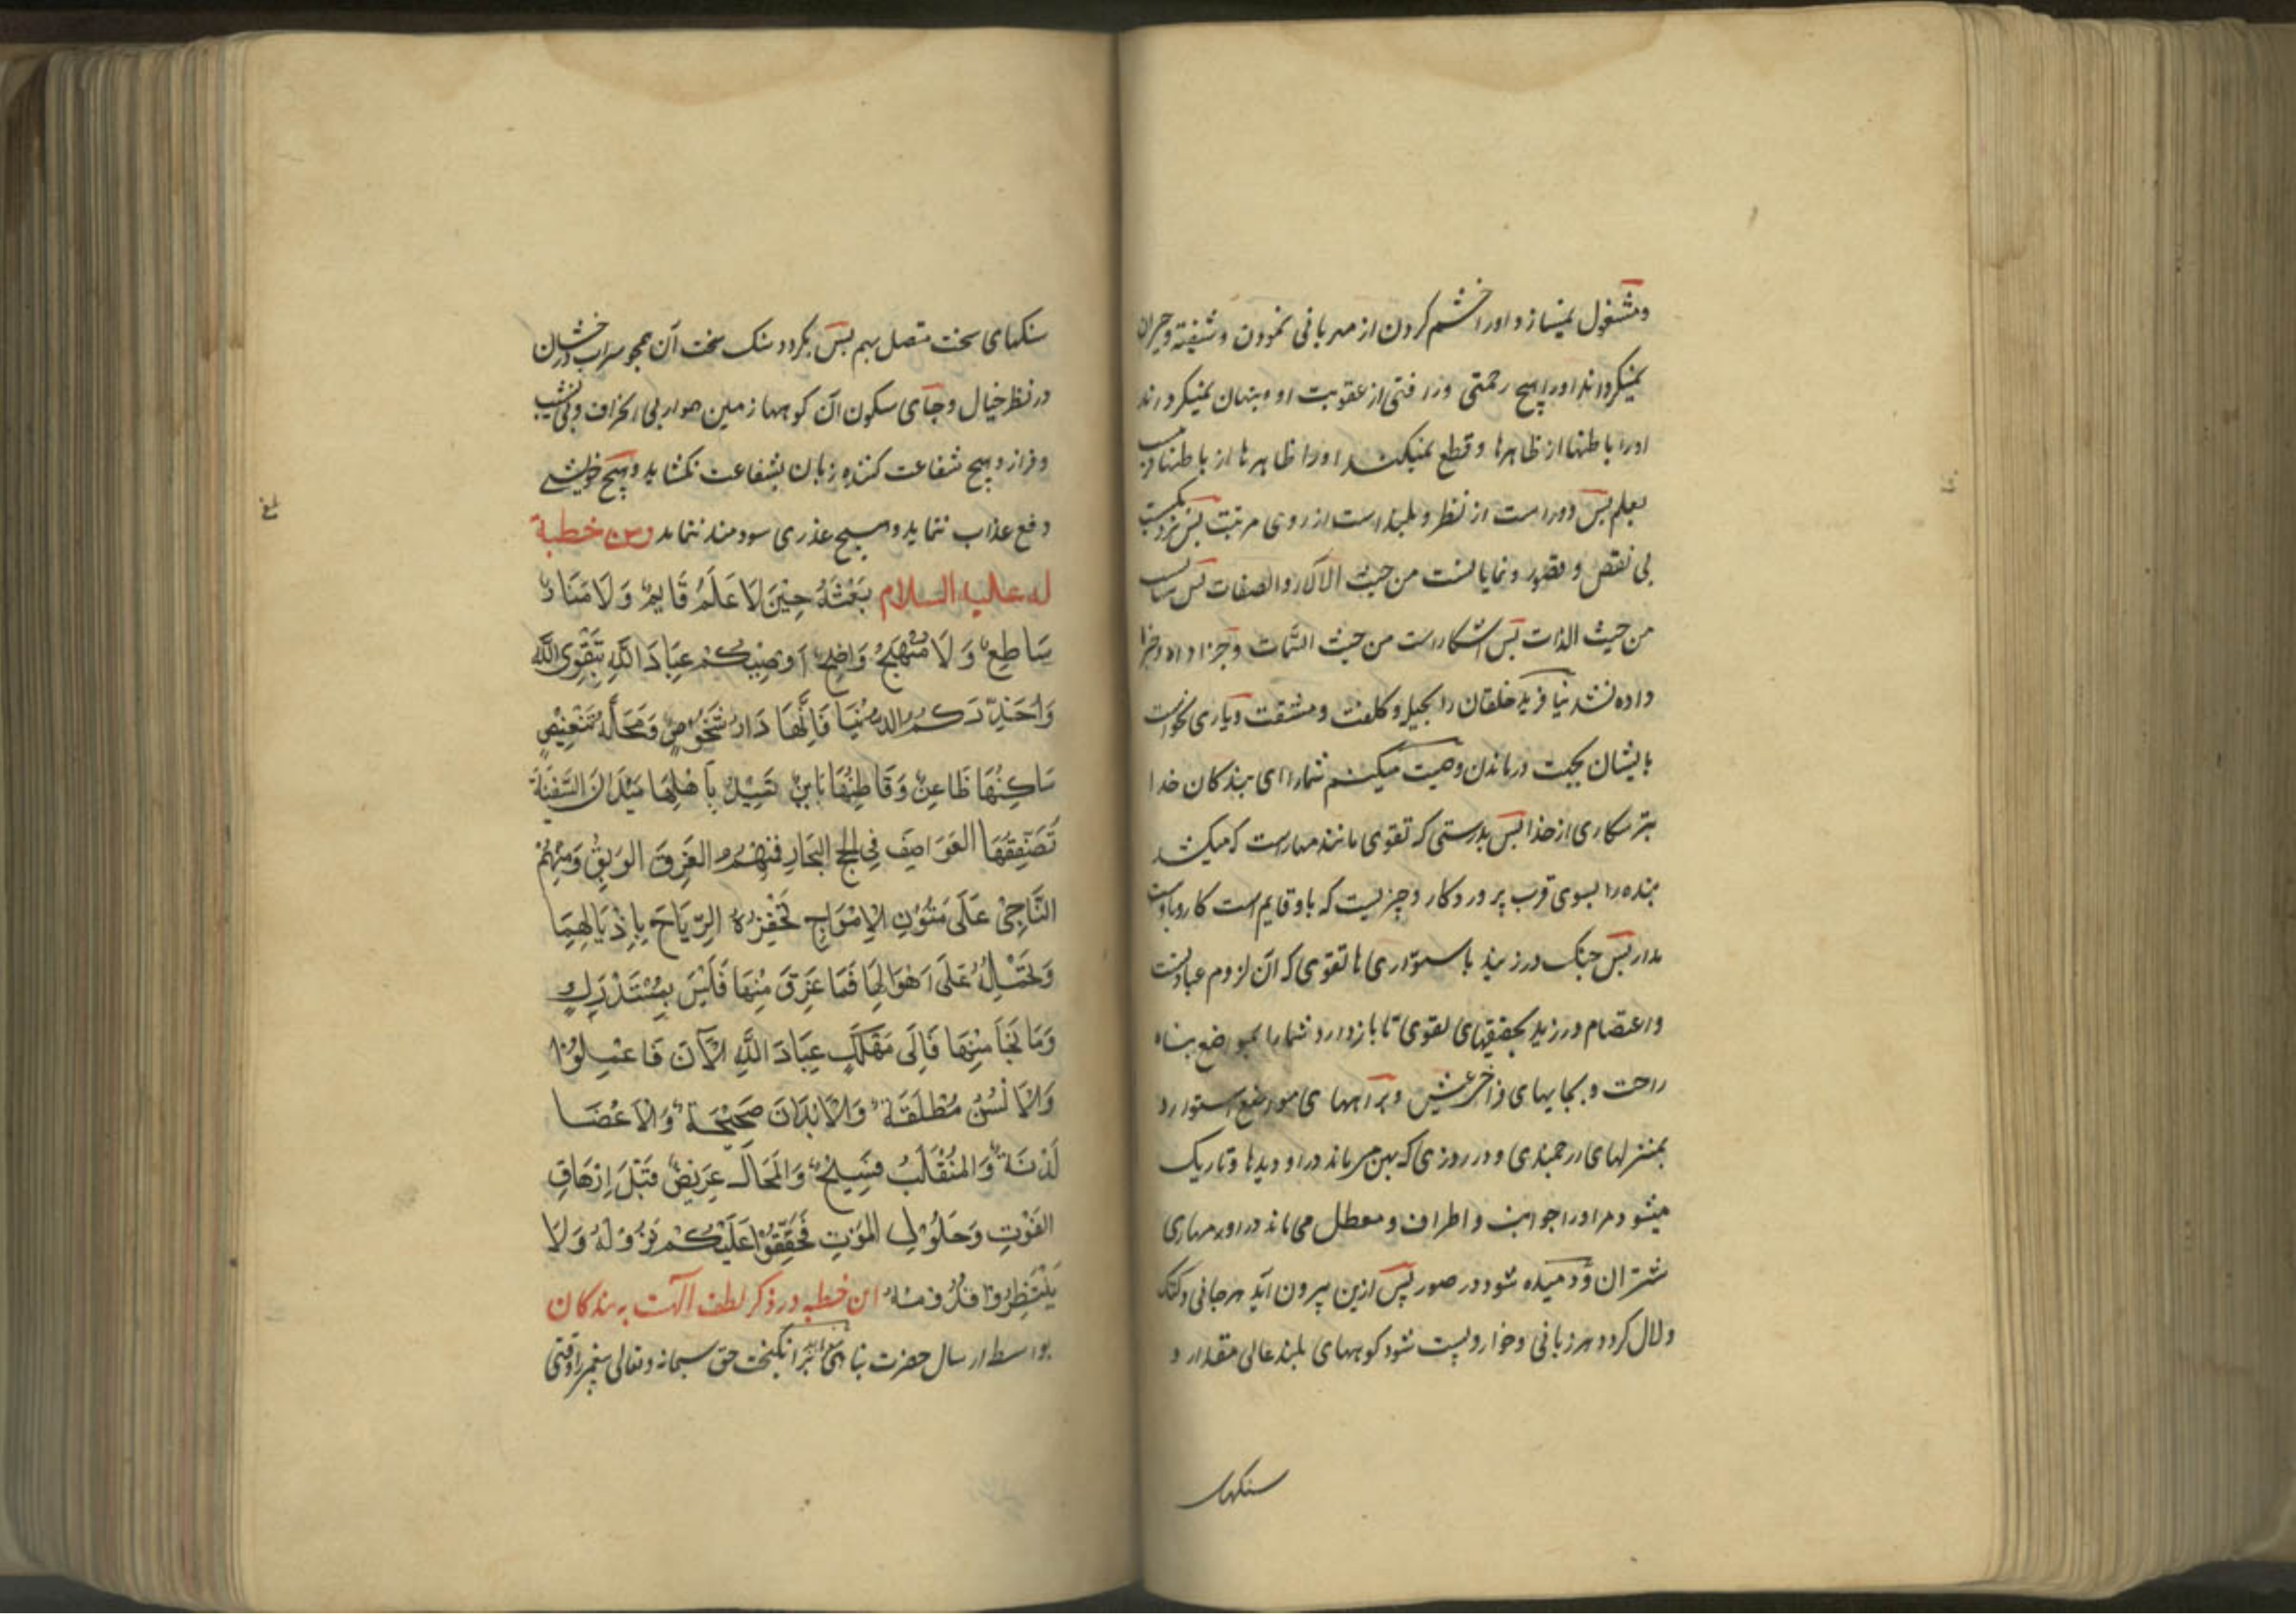 ومشغول نمیسازد اورا خشم کردن از مهربانی نمودن و شیفته و حیران
نمیکرداند اورا هیچ رحمتی و رافتی از عقوبت او و پنهان نمیکردند
اورا باطنها از ظاهرها و قطع نمیکند اورا ظاهرها از باطنها
بعلم پس دور است از نظر و بلند است از روی مرتبت پس نزدیکست
بی نقص و قصور و نمایانست من حیث الآثار والصفات پس
من حیث الذات پس آشکار است من حیث السمات و جزا داد و جزا
داده نشد نیافرید خلقان را بحیل و کلفت و مشقت و یاری نخواست
بایشان بجهت درماندن وصیت میکنم شما را ای بندکان خدا
بترسکاری از خدا پس بدرستی که تقوی مانند مهار است که میکشد
بنده را بسوی قرب پروردکار و چیزیست که باو قایم است کار و
مدار پس چنک درزنید باستواری ها تقوی که آن لزوم عبادتست
واعتصام ورزید بحقیقتهای تقوی تا بازدارد شما را بمواضع پناه
راحت و بجایهای فراخی عیش و برآههای مواضع استوار و
بمنزلهای ارجمندی و در روزی که پهن میماند در او دیدها و تاریک
میشود مر اورا جوانب و اطراف و معطل می ماند در او مهاری
شتران و دمیده شود در صور پس ازین بیرون آید هر جانی و کنک
ولال کردد هر زبانی و خوار و پست شود کوههای بلند عالی مقدار و
سنکهای
سنکهای سخت متصل بهم پس بکردد سنک سخت آن همچو سراب درخشان
در نظر خیال و جآی سکون آن کوهها زمین هموار بی انحراف و بی نشیب
و فراز و هیچ شفاعت کننده زبان بشفاعت نکشاید و هیچ خویشی
دفع عذاب ننماید و هیچ عذری سودمند ننماید ومن خطبة
له علیه السلام بَعَثَهُ حِیْنَ لَا عَلَمٌ قَایِمٌ وَلَا مَنَارٌ
سَاطِعٌ وَلَا مَنْهَجٌ وَاضِحٌ اُوصِیْکُمْ عِبَادَ اللّٰهِ بِتَقْوَی اللّٰهِ
وَاُحَذِّرَکُمُ الدُّنْیَا فَاِنَّهَا دَارُ شُخُوصٍ وَمَحَلَّةُ تَنْغِیْصٍ
سَاکِنُهَا ظَاعِنٌ وَقَاطِنُهَا بَایِنٌ تَمِیْلُ بِاَهْلِهَا مَیَلَانَ السَّفِیْنَةِ
تَصْفِقُهَا العَوَاصِفُ فِی لُجَجِ البِحَارِ فَمِنْهُمُ الغَرِقُ الوَبِقُ وَمِنْهُمْ
النَّاجِیْ عَلَی مُتُوْنِ الاَمْوَاجِ تَحْفِزُهُ الرِّیَاحُ بِاَذْیَالِهَا
وَتَحْمِلُهُ عَلَی اَهْوَالِهَا فَمَا غَرِقَ مِنْهَا فَلَیْسَ بِمُسْتَدْرَكٍ
وَمَا نَجَا مِنْهَا فَاِلَی مَهْلَكٍ عِبَادَ اللّٰهِ الآنَ فَاعْمَلُوْا
وَالاَلْسُنُ مُطْلَقَةٌ وَالاَبْدَانُ صَحِیْحَةٌ وَالاَعْضَا
لَدْنَةٌ وَالمُنْقَلَبُ فَسِیْحٌ وَالمَجَالُ عَرِیْضٌ قَبْلَ اِرْهَاقِ
الفَوْتِ وَحُلُوْلِ المَوْتِ فَحَقِّقُوْا عَلَیْکُمْ نُزُوْلَهُ وَلَا
یَنْتَظِرُوْا قُدُوْمَهُ این خطبه در ذکر لطف الهست به بندکان
بواسطه ارسال حضرت انکیخت حق سبحانه وتعالی پیغمبر را وقتی